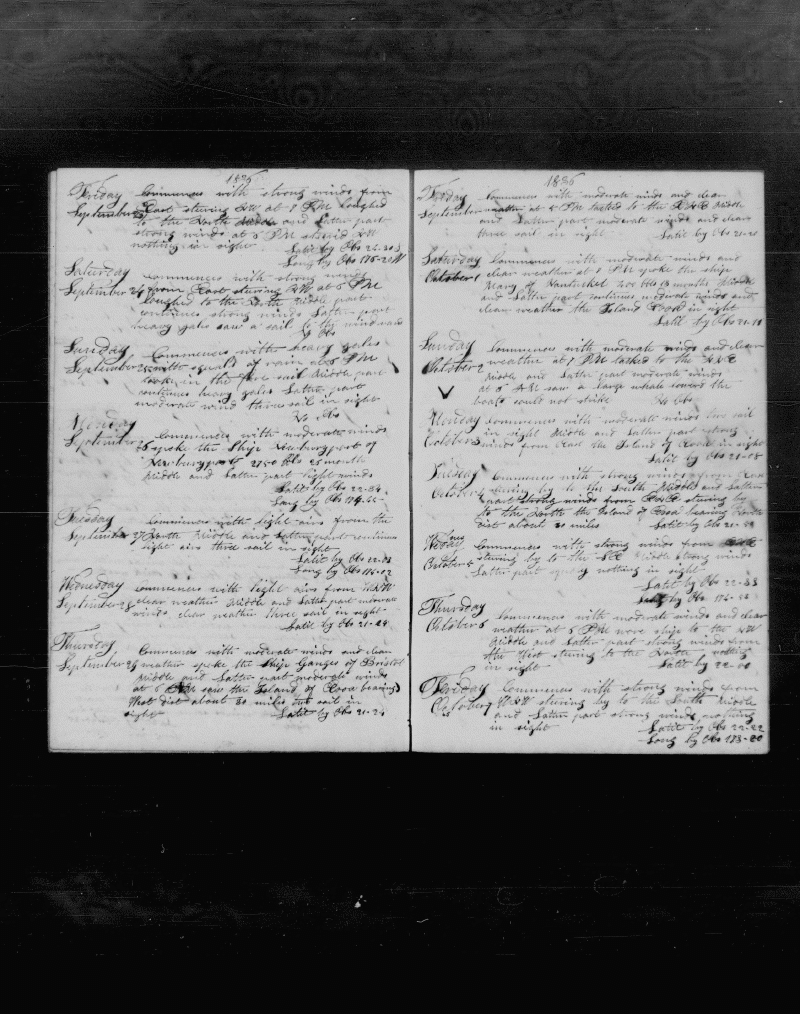 1836
Friday Commences with strong winds from
September 23 East steering NW at 1 PM loughed
to the North Middle and Latter part
strong winds at 5 PM steered NW
nothing in sight Latit by Obs 24-30 S
Long by Obs 178-21 W
Saturday commences with strong winds
September 24 from East steering NW at 5 PM
loughed to the North Middle part
continues strong winds Latter part
heavy gales saw a sail to the windward
No Obs
Sunday Commences with heavy gales
September 25 with squals of rain at 5 PM
took in the fore sail Middle part
continues heavy gales Latter part
moderate wind three sail in sight
No Obs
Monday commences with moderate winds
September 26 spoke the Ship Newburyport of
Newburyport 2750 bbls 25 month
Middle and Latter part light winds
Latit by Obs 22-34
Long by Obs
Tuesday Commences with light airs from the
September 27 North Middle and Latter part continues
light airs three sail in sight
Latit by Obs
Long by Obs
Wednesday commences with light airs from
September 28 clear weather Middle and Latter part moderate
winds clear weather three sail in sight
Latit by Obs 21-24
Thursday Commences with moderate winds and clear
September 29 weather spoke the Ship Ganges of Bristol
Middle and Latter part moderate winds
at 5 saw the Island of Rosa bearing
West dist about 30 miles sail in
sight Latit by Obs 21-21
1836
Friday Commences with moderate winds and clear
September weather at 4 PM tacked to the NNE Middle
and Latter part moderate winds and clear
three sail in sight Latit by Obs 21-21
Saturday Commences with moderate winds and
October 1 clear weather at 1 PM spoke the ship
Mary of Nantucket bbls 13 months Middle
and Latter part continues moderate winds and
clear weather the Island in sight
Latit by Obs 21-11
Sunday Commences with moderate winds and clear
October 2 weather at 1 PM tacked to the NNE
and Latter part moderate winds
at 5 AM saw a large whale lowerd the
boats could not strike No Obs
Monday Commences with moderate winds five sail
October 3 in sight Middle and Latter part strong
winds from East the Island of in sight
Latit by Obs 21-05
Tuesday Commences with strong winds from East
October 4 steering by to the South Middle and Latter
part strong winds from steering by
to the North the Island of bearing North
dist about 20 miles Latit by Obs
Wednes Commences with strong winds from
October 5 steering by to the SSE Middle strong winds
Latter part squaly nothing in sight
Latit by Obs 22-33
Long by Obs
Thursday Commences with moderate winds and clear
October 6 weather at 5 PM wore ship to the NW
Middle and Latter part strong winds from
the West steering to the North nothing
in sight Latit by Obs 22-00
Friday Commences with strong winds from
October 7 WSW steering by to the South Middle
and Latter part strong winds nothing
in sight Latit by Obs 22-22
Long by Obs 173-00